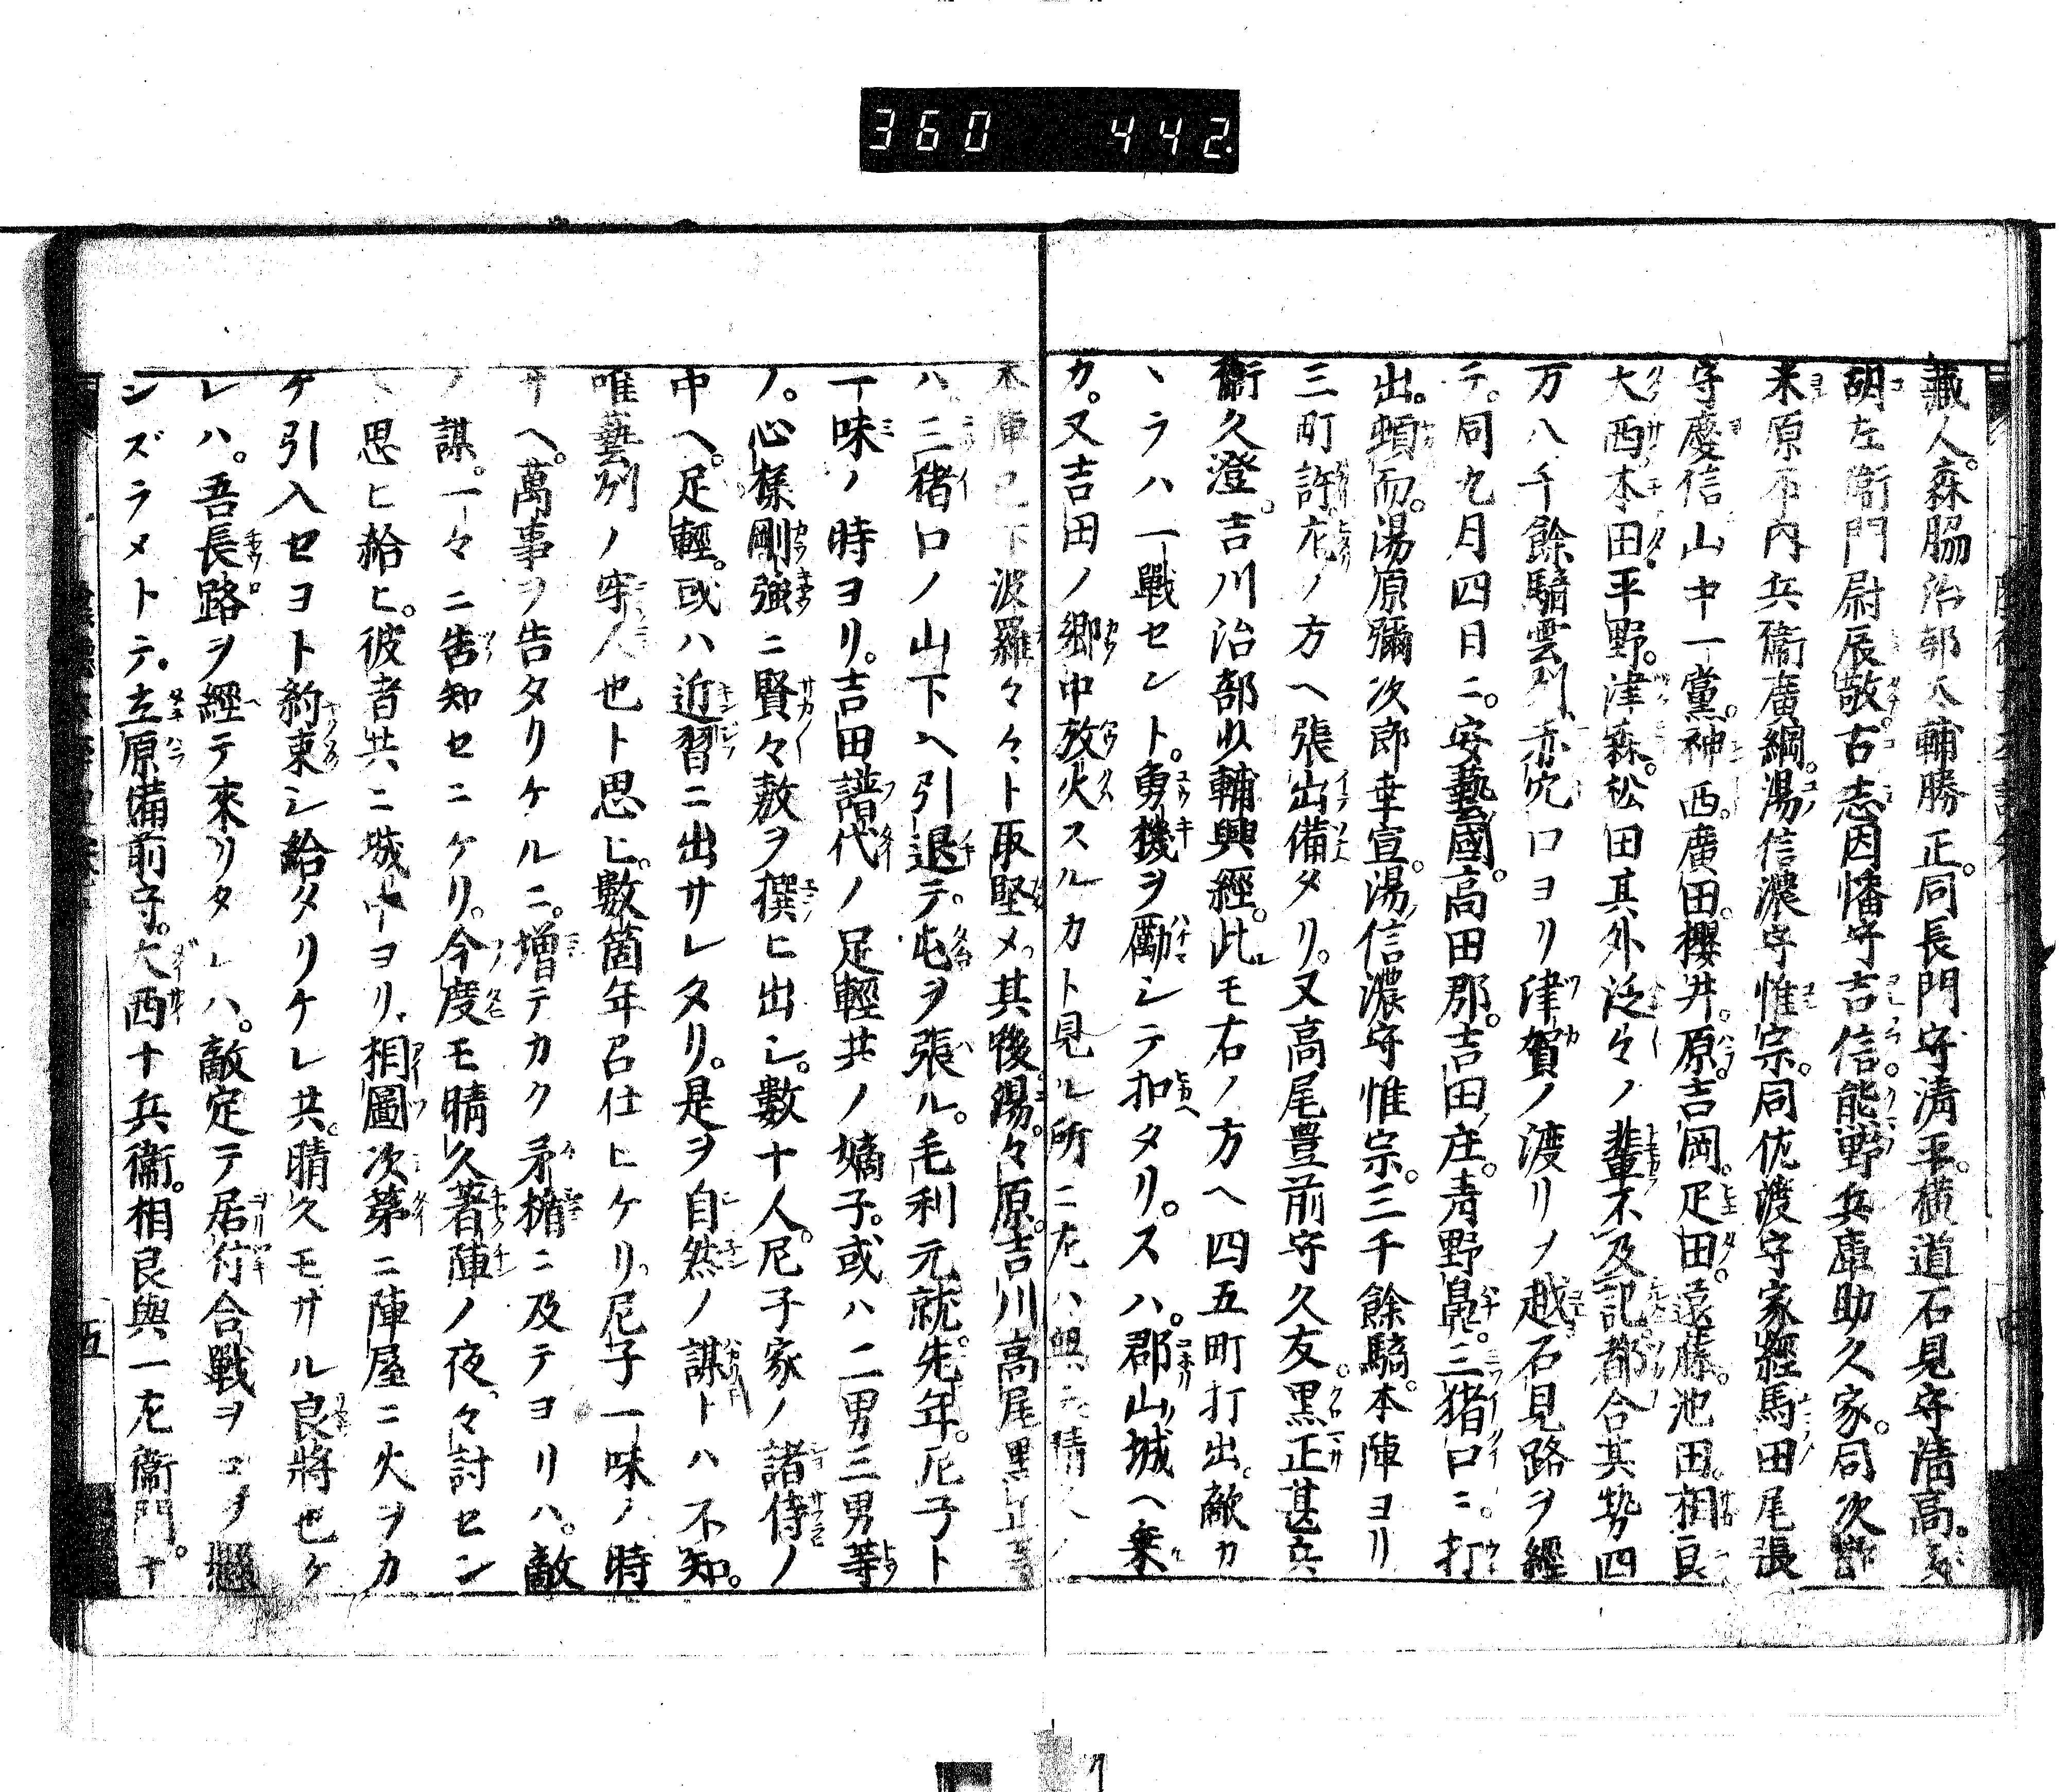 360 442
藏人。森脇治部太輔勝正。同長門守清平。横道石見守清高。
胡左衛門尉辰敬。古志因幡守吉信。能野兵庫助久家。同次郎
米原市内兵衛廣綱。湯信濃守惟宗。同佐渡守家經。馬田尾張
守慶信。山中一黨。神西。廣田。櫻井。原。吉岡。疋田。遠藤。池田。相良
大西。本田。平野。津森。松田其外泛々ノ輩不及記。都合其勢四
万八千餘騎。雲列赤穴口ヨリ津賀ノ渡リヲ越。石見路ヲ經
テ。同九月四日ニ。安藝國。高田郡。吉田庄。青野鼻。三猪口ニ。打
出。頓而。湯原彌次郎幸宣。湯信濃守惟宗。三千餘騎。本陣ヨリ
三町許左ノ方ヘ張出備タリ。又高尾豊前守久友。黒正甚兵
衛久澄。吉川治部少輔興經。此モ右ノ方ヘ四五町打出。敵カ
丶ラハ一戰セント。勇機ヲ勵シテ扣タリ。スハ。郡山城ヘ乗
カ。又吉田ノ郷中放火スルカト見ル所ニ左ハ無
本陣已下波羅々々ト取堅メ。其後湯。々原。吉川高尾黒正等
ハ。三猪口ノ山下ヘ引退テ。屯ヲ張ル。毛利元就。先年。尼子ト
一味ノ時ヨリ。吉田譜代ノ足輕共ノ嫡子。或ハ二男三男等
ノ。心樣剛強ニ賢々敷ヲ撰ヒ出シ。數十人。尼子家ノ諸侍ノ
中ヘ。足輕。或ハ近習ニ出サレタリ。是ヲ自然ノ謀トハ不知。
唯藝列ノ牢人也ト思ヒ。數箇年召仕ヒケリ。尼子一味ノ時
サヘ。萬事ヲ告タリケルニ。増テカク矛楯ニ及テヨリハ。敵
ノ謀。一々ニ告知セニケリ。今度モ晴久著陣ノ夜々討セン
丶思ヒ給ヒ。彼者共ニ城中ヨリ。相圖次第ニ陣屋ニ火ヲカ
ケ引入セヨト約束シ給タリケレ共。晴久モサル良將也ケ
レハ。吾長路ヲ經テ來リタレハ。敵定テ居付合戰ヲコソ懸
ンズラメトテ。立原備前守。大西十兵衛。相良與一左衛門。十
五